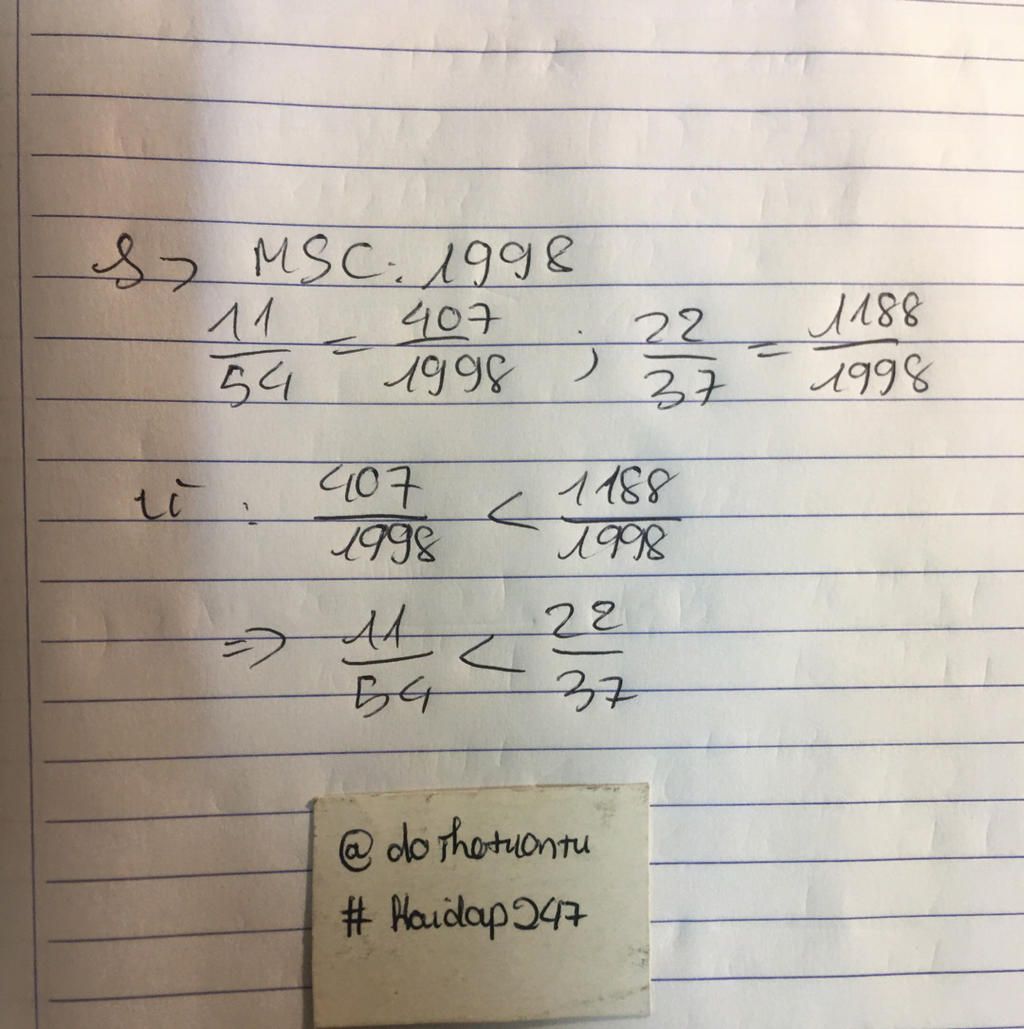 S → MSC: 1998
11/54 = 407/1998 ; 22/37 = 1188/1998
Vì : 407/1998 < 1188/1998
=> 11/54 < 22/37
@dothetuontu
# Haidap247